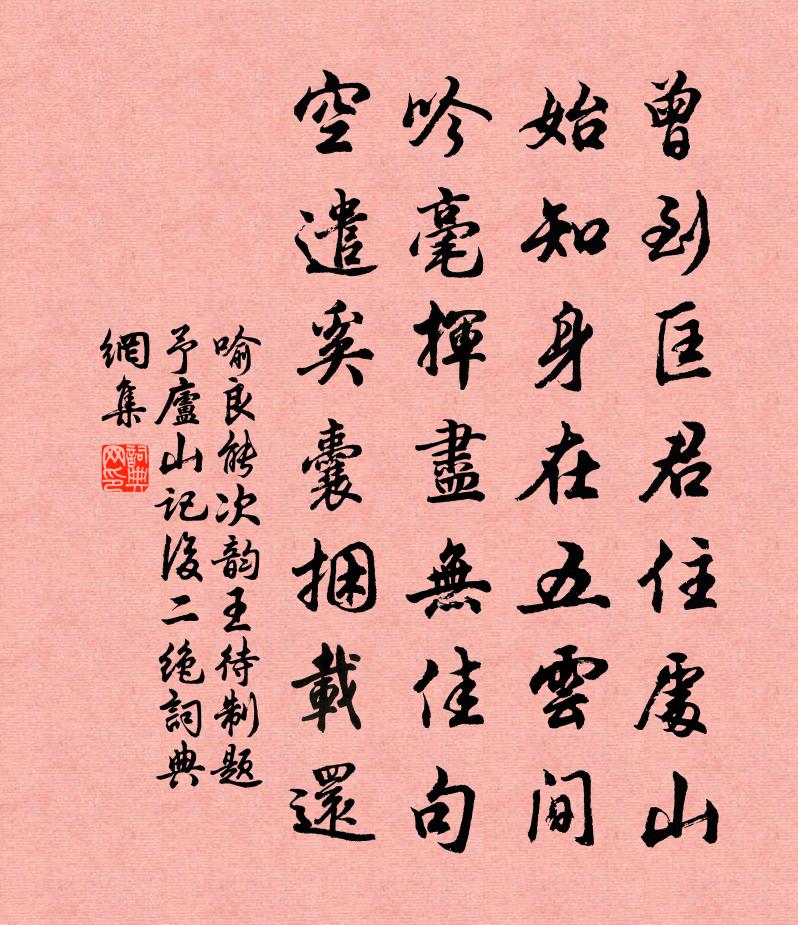 曾到匡君住處山
始知身在五雲間
吟毫揮盡無佳句
空遣奚囊捆載還
喻良能次韵王待制题
予廬山記後二绝詞典
網集
詞典網印